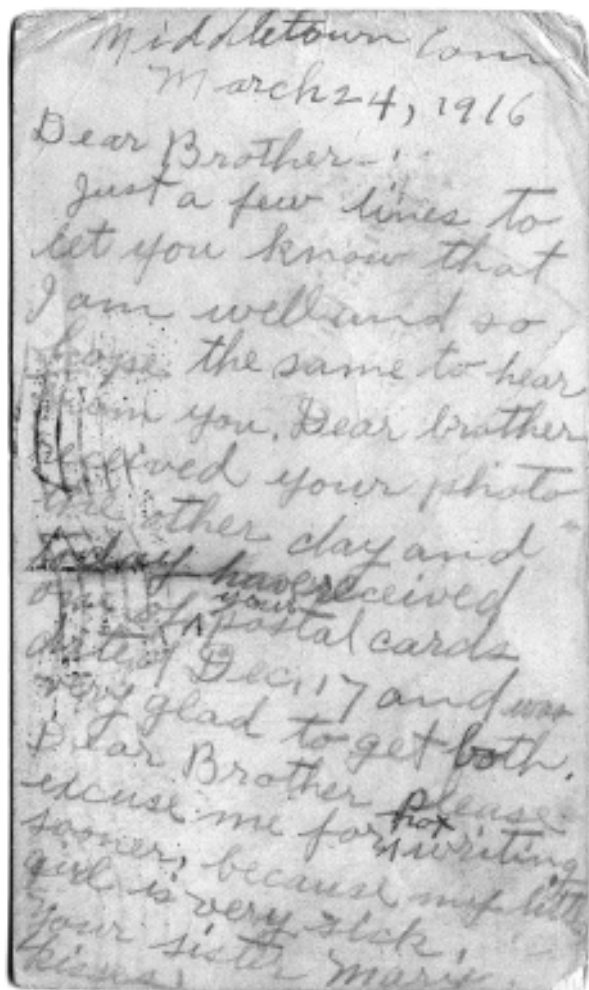 Middletown Conn
March 24, 1916
Dear Brother—:
Just a few lines to
let you know that
I am well and so
hope the same to hear
from you. Dear brother
received your photo
the other day and
today have received
one of your postal cards
dated Dec. 17 and was
very glad to get both.
Dear Brother please
excuse me for not writing
sooner, because my little
girl is very sick.
Your sister Marie.
Kisses.